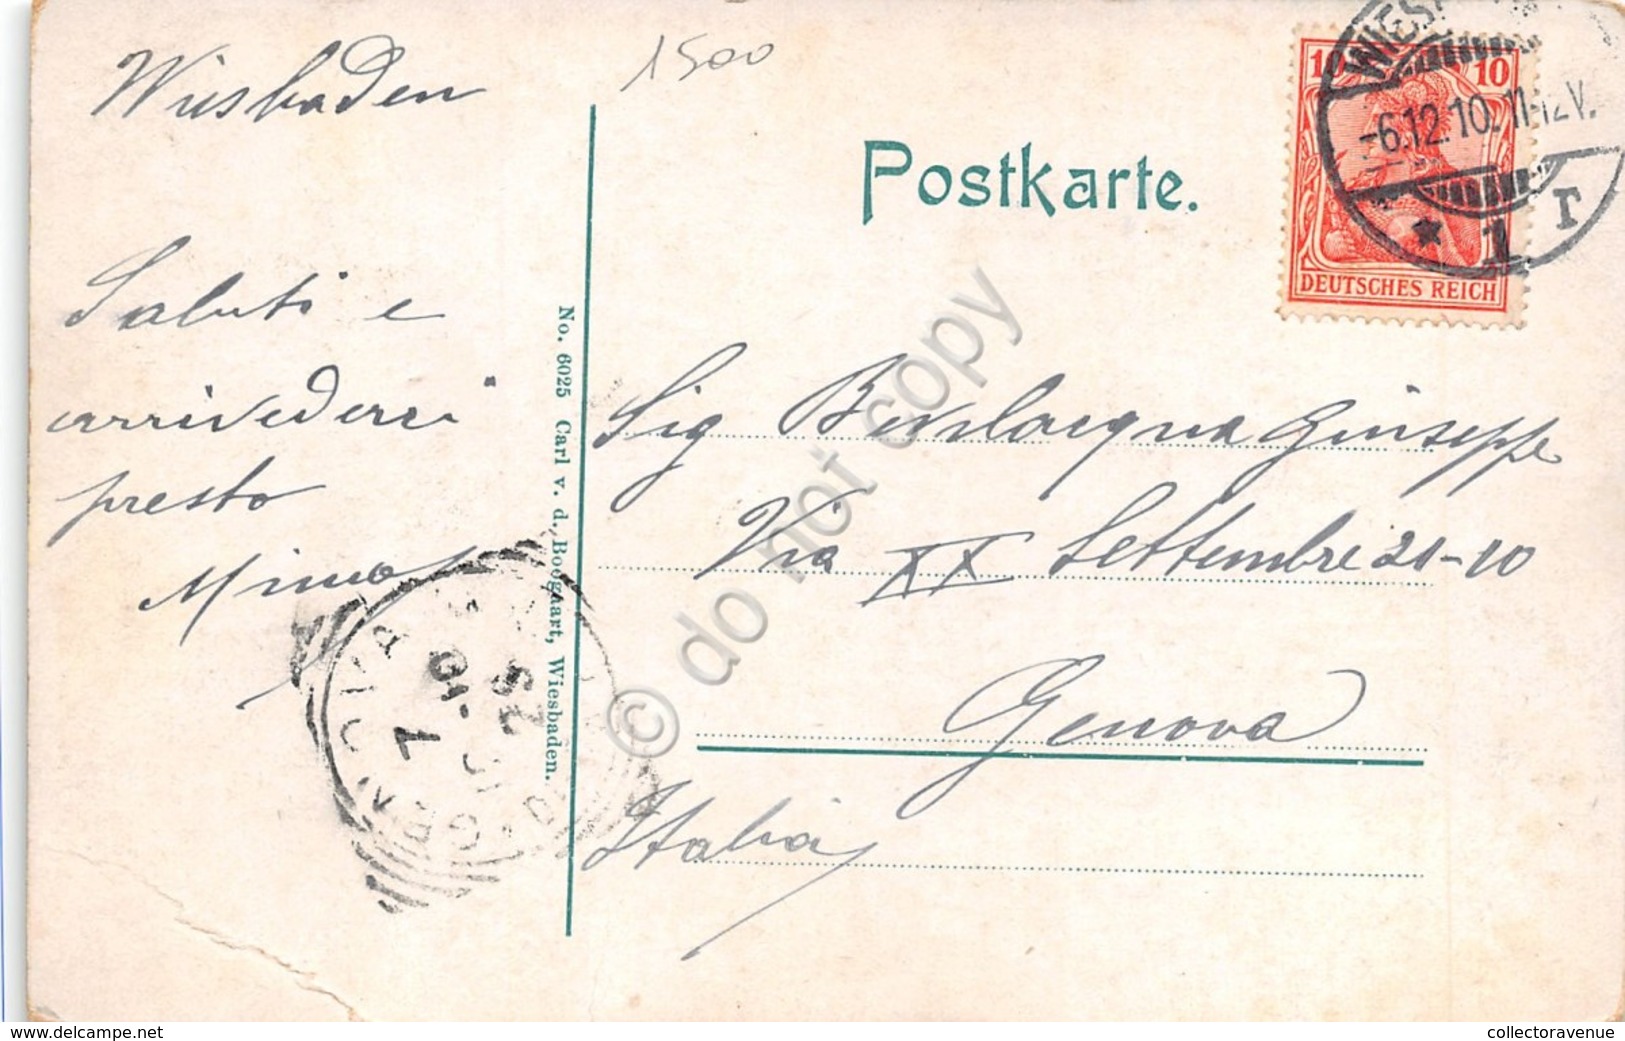 Wiesbaden
1500
Postkarte.
10 10
DEUTSCHES REICH
WIES
-6.12.10. 11-12V.
* 1 r
Saluti e
arrivederci
presto
No. 6025 Carl v. d. Boogaart, Wiesbaden.
Sig Bevilacqua Giuseppe
Via XX Settembre 21-10
Genova
Italia
GENOVA
© do not copy
delcampe.net
collectoravenue